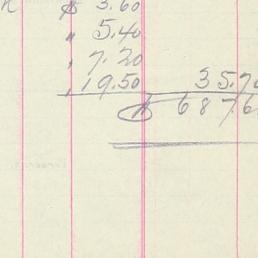 $ 3.60
" 5.40
" 7.20
" 19.50 35.70
$ 687.6